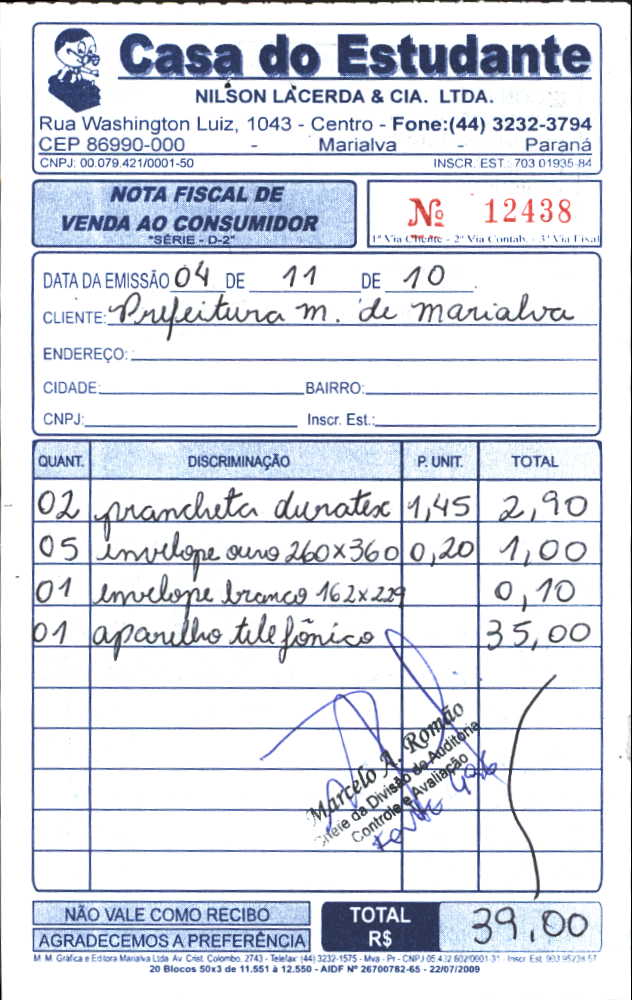 Casa do Estudante
NILSON LACERDA & CIA. LTDA.
Rua Washington Luiz, 1043 - Centro - Fone:(44) 3232-3794
CEP 86990-000 - Marialva - Paraná
CNPJ: 00.079.421/0001-50 INSCR. EST.: 703 01935-84
NOTA FISCAL DE
VENDA AO CONSUMIDOR
"SÉRIE - D-2"
Nº 12438
1ª Via Cliente - 2ª Via Contab. - 3ª Via Fixa
DATA DA EMISSÃO 04 DE 11 DE 10
CLIENTE: Prefeitura m. de marialva
ENDEREÇO:
CIDADE: BAIRRO:
CNPJ: Inscr. Est.:
QUANT. DISCRIMINAÇÃO P. UNIT. TOTAL
02 prancheta duratex 1,45 2,90
05 envelope ouro 260x360 0,20 1,00
01 envelope branco 162x229 0,10
01 aparelho telefônico 35,00
Marcelo A. Romão
Chefe da Divisão de Auditoria
Controle e Avaliação
NÃO VALE COMO RECIBO
AGRADECEMOS A PREFERÊNCIA
TOTAL
R$
39,00
M. M. Gráfica e Editora Marialva Ltda Av. Crist. Colombo, 2743 - Telefax (44) 3232-1575 - Mva - Pr - CNPJ 05.432.602/0001-31 - Inscr. Est.
20 Blocos 50x3 de 11.551 à 12.550 - AIDF Nº 26700782-65 - 22/07/2009